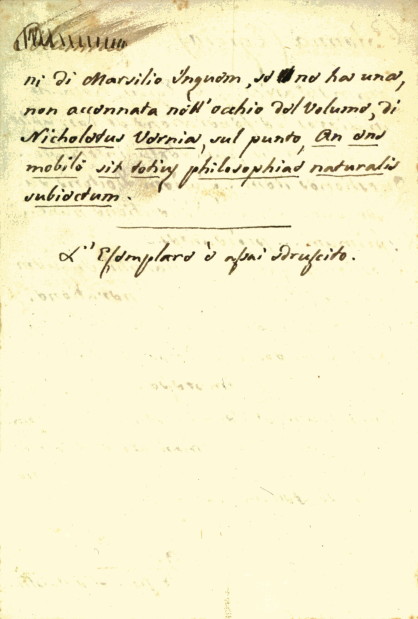 ni di Marsilio Inguem, se ne ha una,
non accennata nell' occhio del Volume, di
Nicholetus Vernia, sul punto, An ens
mobile sit totius philosophiae naturalis
subiectum.
L' Esemplare è assai sdruscito.